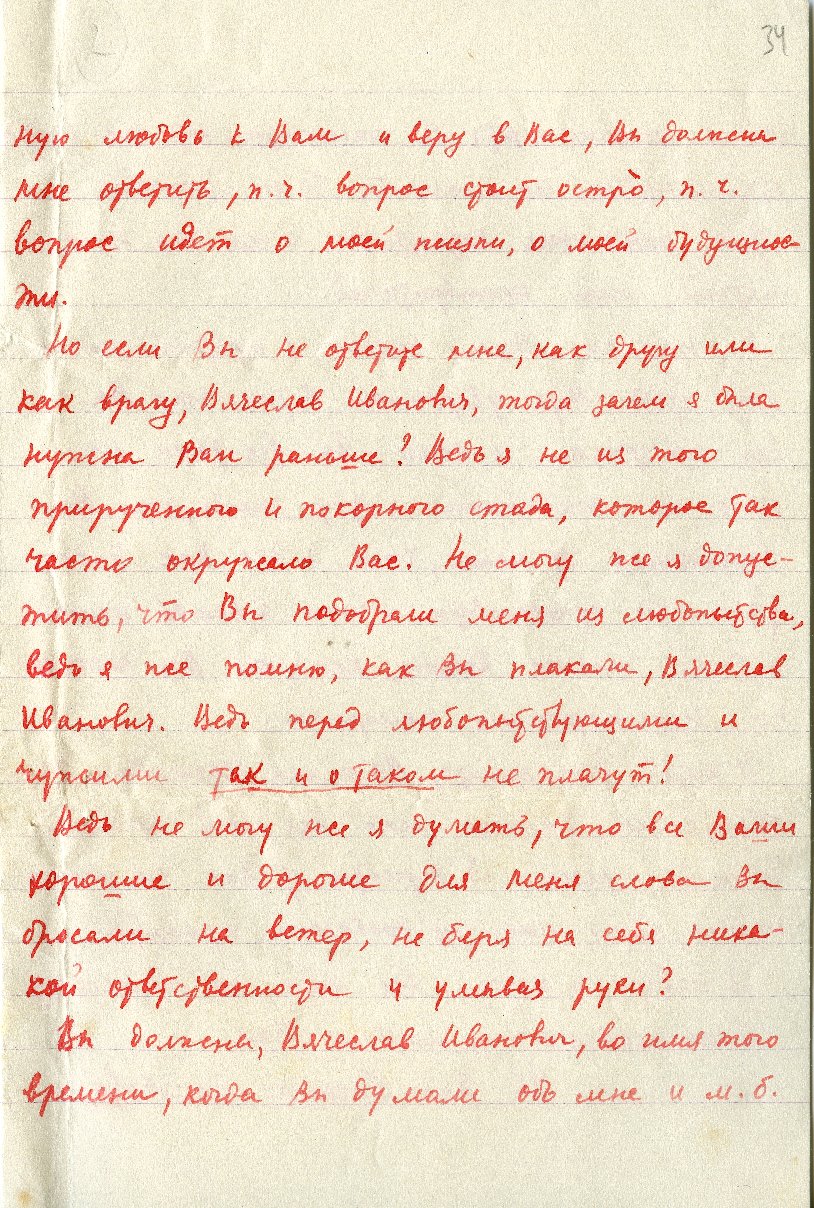 34
ную любовь к Вам и веру в Вас, Вы должны
мне ответить, п.ч. вопрос стоит остро, п.ч.
вопрос идет о моей жизни, о моей будущнос-
ти.
Но если Вы не ответите мне, как другу или
как врагу, Вячеслав Иванович, тогда зачем я была
нужна Вам раньше? Ведь я не из того
прирученного и покорного стада, которое так
часто окружало Вас. Не могу же я допус-
тить, что Вы подобрали меня из любопытства,
ведь я же помню, как Вы плакали, Вячеслав
Иванович. Ведь перед любопытствующими и
чужими так и о таком не плачут!
Ведь не могу же я думать, что все Ваши
хорошие и дорогие для меня слова Вы
бросали на ветер, не беря на себя ника-
кой ответственности и умывая руки?
Вы должны, Вячеслав Иванович, во имя того
времени, когда Вы думали обо мне и м.б.